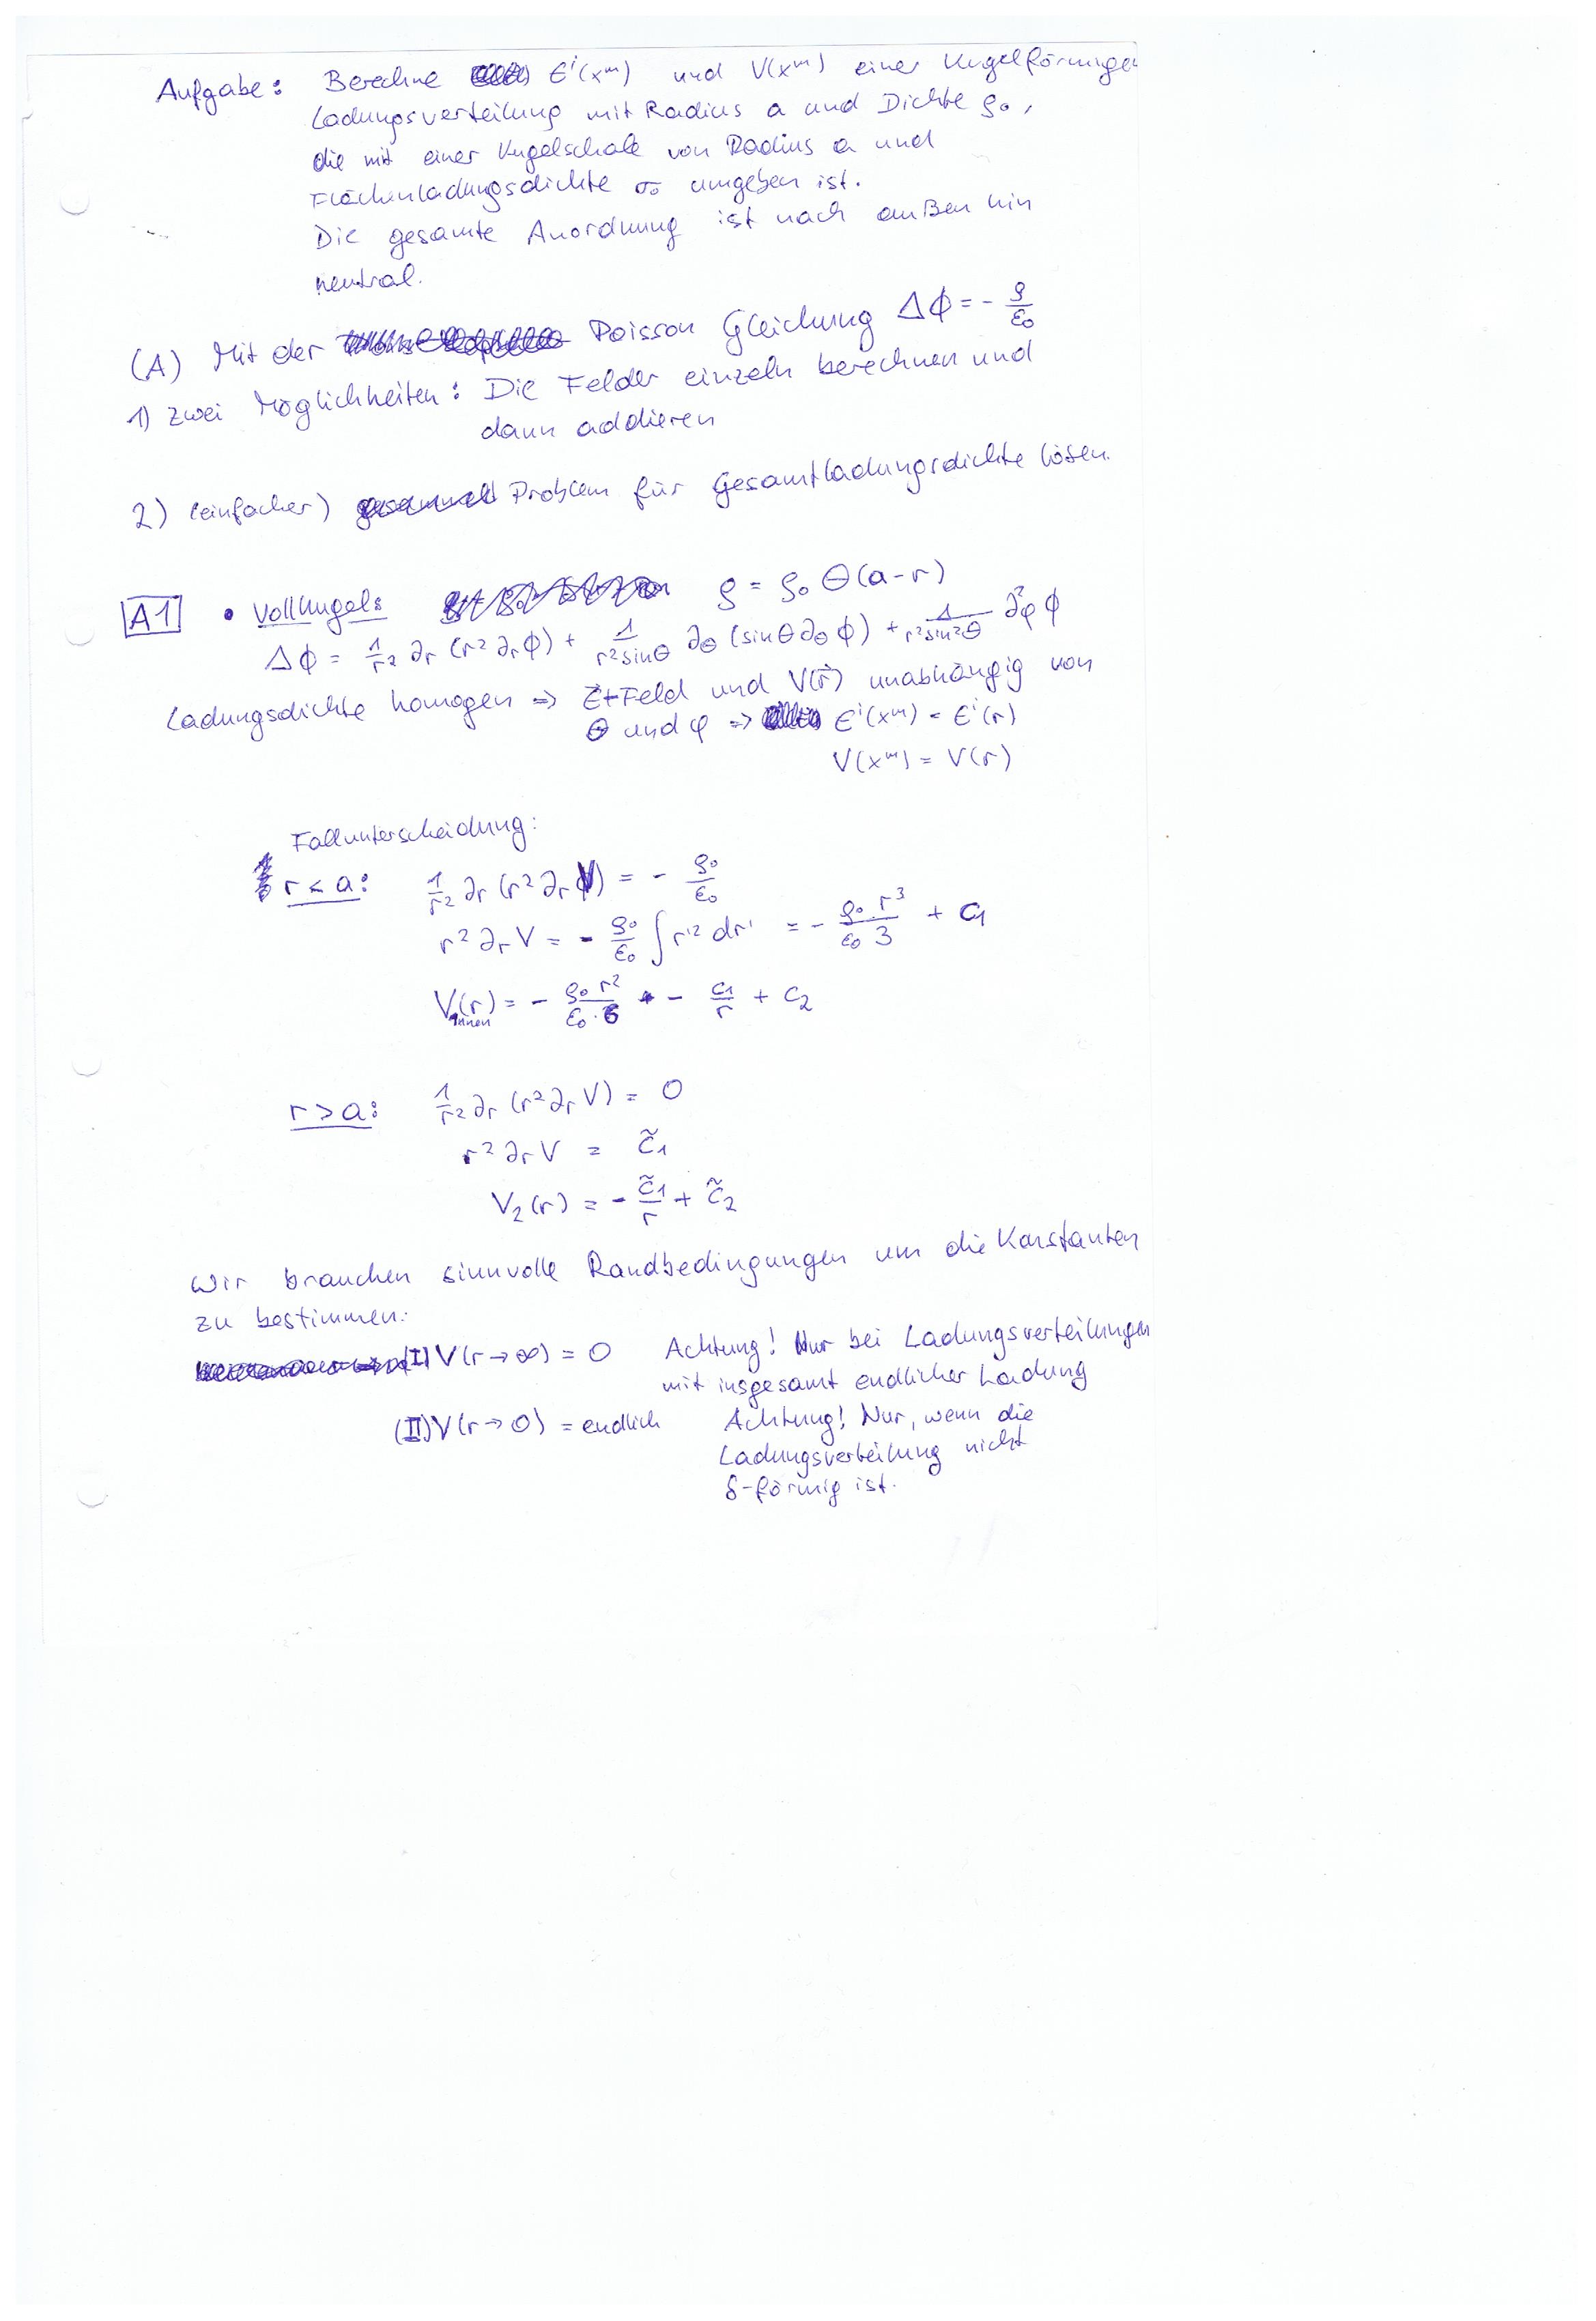 Aufgabe: Berechne Eⁱ(xᵐ) und V(xᵐ) einer kugelförmigen
Ladungsverteilung mit Radius a und Dichte ρ₀,
die mit einer Kugelschale von Radius a und
Flächenladungsdichte σ₀ umgeben ist.
Die gesamte Anordnung ist nach außen hin
neutral.
(A) Mit der Poisson Gleichung Δϕ = - ρ/ε₀
1) zwei Möglichkeiten: Die Felder einzeln berechnen und
dann addieren
2) (einfacher) Problem für Gesamtladungsdichte lösen.
A1 • Vollkugel: ρ = ρ₀ Θ(a-r)
Δϕ = 1/r² ∂r (r² ∂r ϕ) + 1/(r² sinθ) ∂θ (sinθ ∂θ ϕ) + 1/(r² sin²θ) ∂²φ ϕ
Ladungsdichte homogen ⇒ E-Feld und V(r⃗) unabhängig von
θ und φ ⇒ Eⁱ(xᵐ) = Eⁱ(r)
V(xᵐ) = V(r)
Fallunterscheidung:
r < a: 1/r² ∂r (r² ∂r V) = - ρ₀/ε₀
r² ∂r V = - ρ₀/ε₀ ∫ r'² dr' = - ρ₀ r³/(ε₀ 3) + c₁
V_innen(r) = - ρ₀ r²/(ε₀·6) - c₁/r + c₂
r > a: 1/r² ∂r (r² ∂r V) = 0
r² ∂r V = c̃₁
V₂(r) = - c̃₁/r + c̃₂
Wir brauchen sinnvolle Randbedingungen um die Konstanten
zu bestimmen:
(I) V(r→∞) = 0 Achtung! Nur bei Ladungsverteilungen
mit insgesamt endlicher Ladung
(II) V(r→0) = endlich Achtung! Nur, wenn die
Ladungsverteilung nicht
δ-förmig ist.